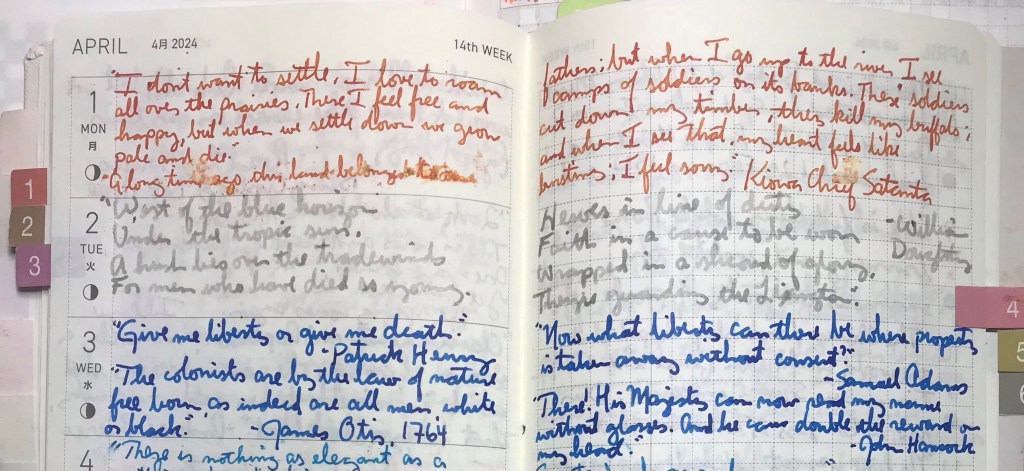 APRIL 4月 2024
14th WEEK
1
MON
月
"I don't want to settle, I love to roam
all over the prairies. There I feel free and
happy, but when we settle down we grow
pale and die."
"A long time ago this land belonged to our
fathers; but when I go up to the river I see
camps of soldiers on its banks. These soldiers
cut down my timber, they kill my buffalo;
and when I see that, my heart feels like
bursting; I feel sorry" Kiowa Chief Satanta
2
TUE
火
"West of the blue horizon
Under the tropic sun.
A hush lies over the tradewinds
For men who have died so young.
Heroes in line of duty
Faith in a cause to be won
Wrapped in a shroud of glory.
They're guarding the Lexington".
-William
Doughty
3
WED
水
"Give me liberty or give me death."
-Patrick Henry
"The colonists are by the law of nature
free born, as indeed are all men, white
or black." -James Otis, 1764
"Now what liberty can there be where property
is taken away without consent?"
-Samuel Adams
"There! His Majesty can now read my name
without glasses. And he can double the reward on
my head." -John Hancock
4
"There is nothing as elegant as a
1
2
3
4
5
6